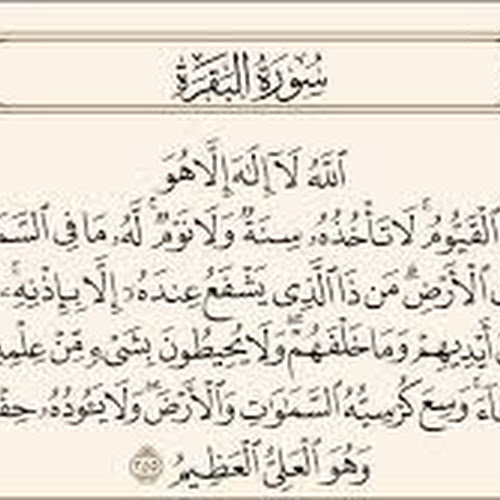 سُورَةُ الْبَقَرَةِ
ٱللَّهُ لَآ إِلَٰهَ إِلَّا هُوَ
ٱلْقَيُّومُ ۚ لَا تَأْخُذُهُۥ سِنَةٌ وَلَا نَوْمٌ ۚ لَّهُۥ مَا فِى ٱلسَّمَ
ٱلْأَرْضِ ۗ مَن ذَا ٱلَّذِى يَشْفَعُ عِندَهُۥٓ إِلَّا بِإِذْنِهِۦ ۚ
أَيْدِيهِمْ وَمَا خَلْفَهُمْ ۖ وَلَا يُحِيطُونَ بِشَىْءٍ مِّنْ عِلْمِ
آءَ ۚ وَسِعَ كُرْسِيُّهُ ٱلسَّمَٰوَٰتِ وَٱلْأَرْضَ ۖ وَلَا يَـُٔودُهُۥ حِفْ
وَهُوَ ٱلْعَلِىُّ ٱلْعَظِيمُ ٢٥٥